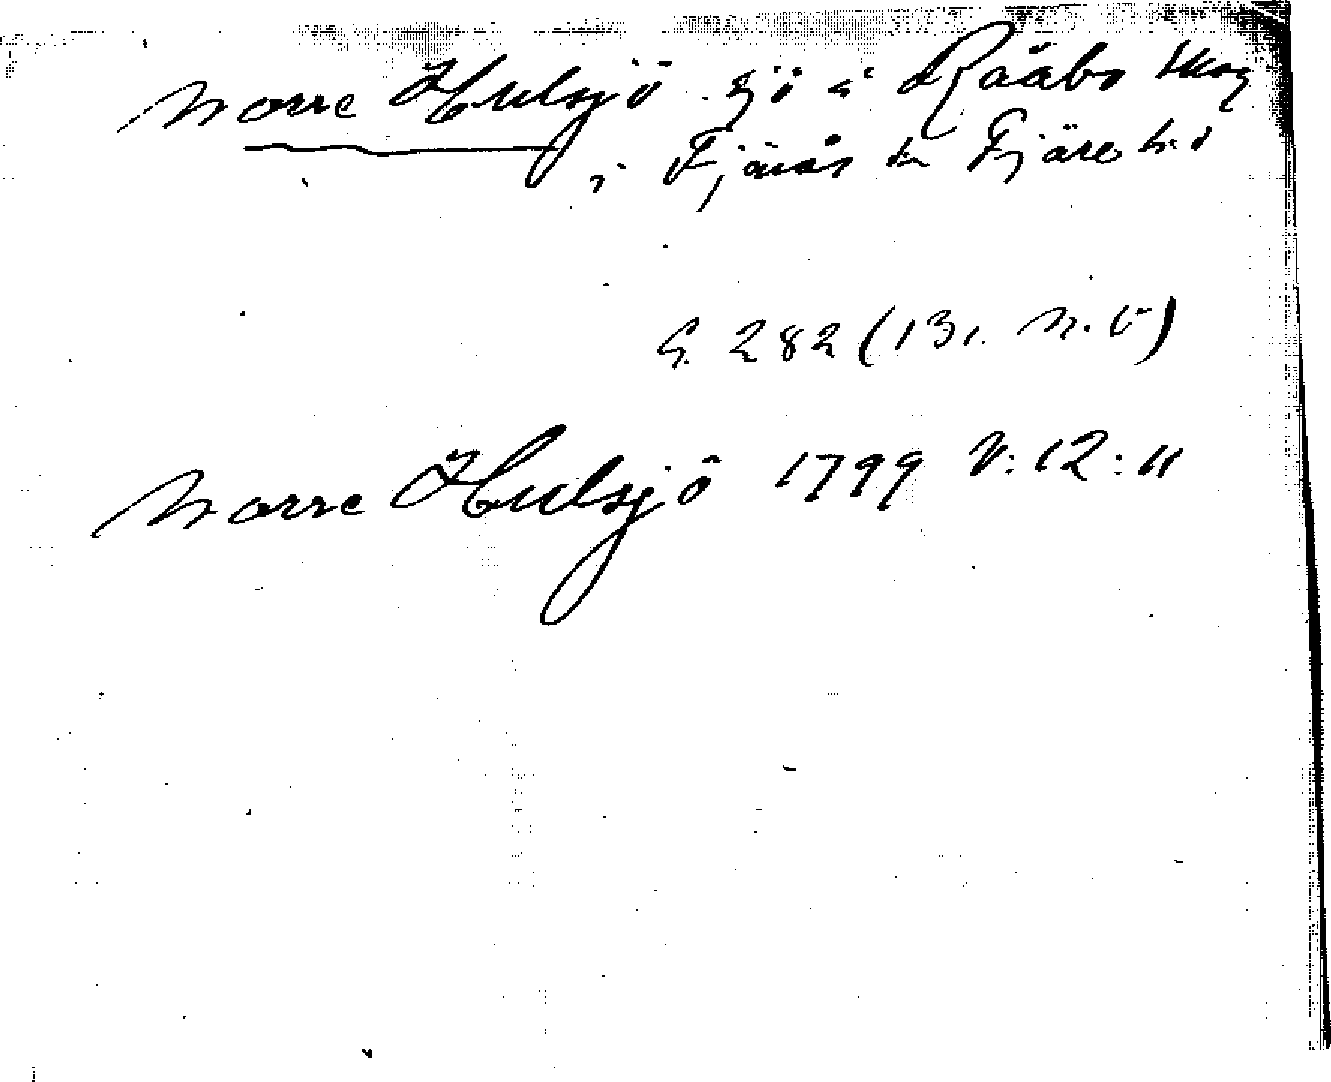 Norre Hulsjö sjö å Rååbo skog
i Fjärås sn Fjäre hd
G. 282 (131. N. V)
Norre Hulsjö 1799 V:12:11